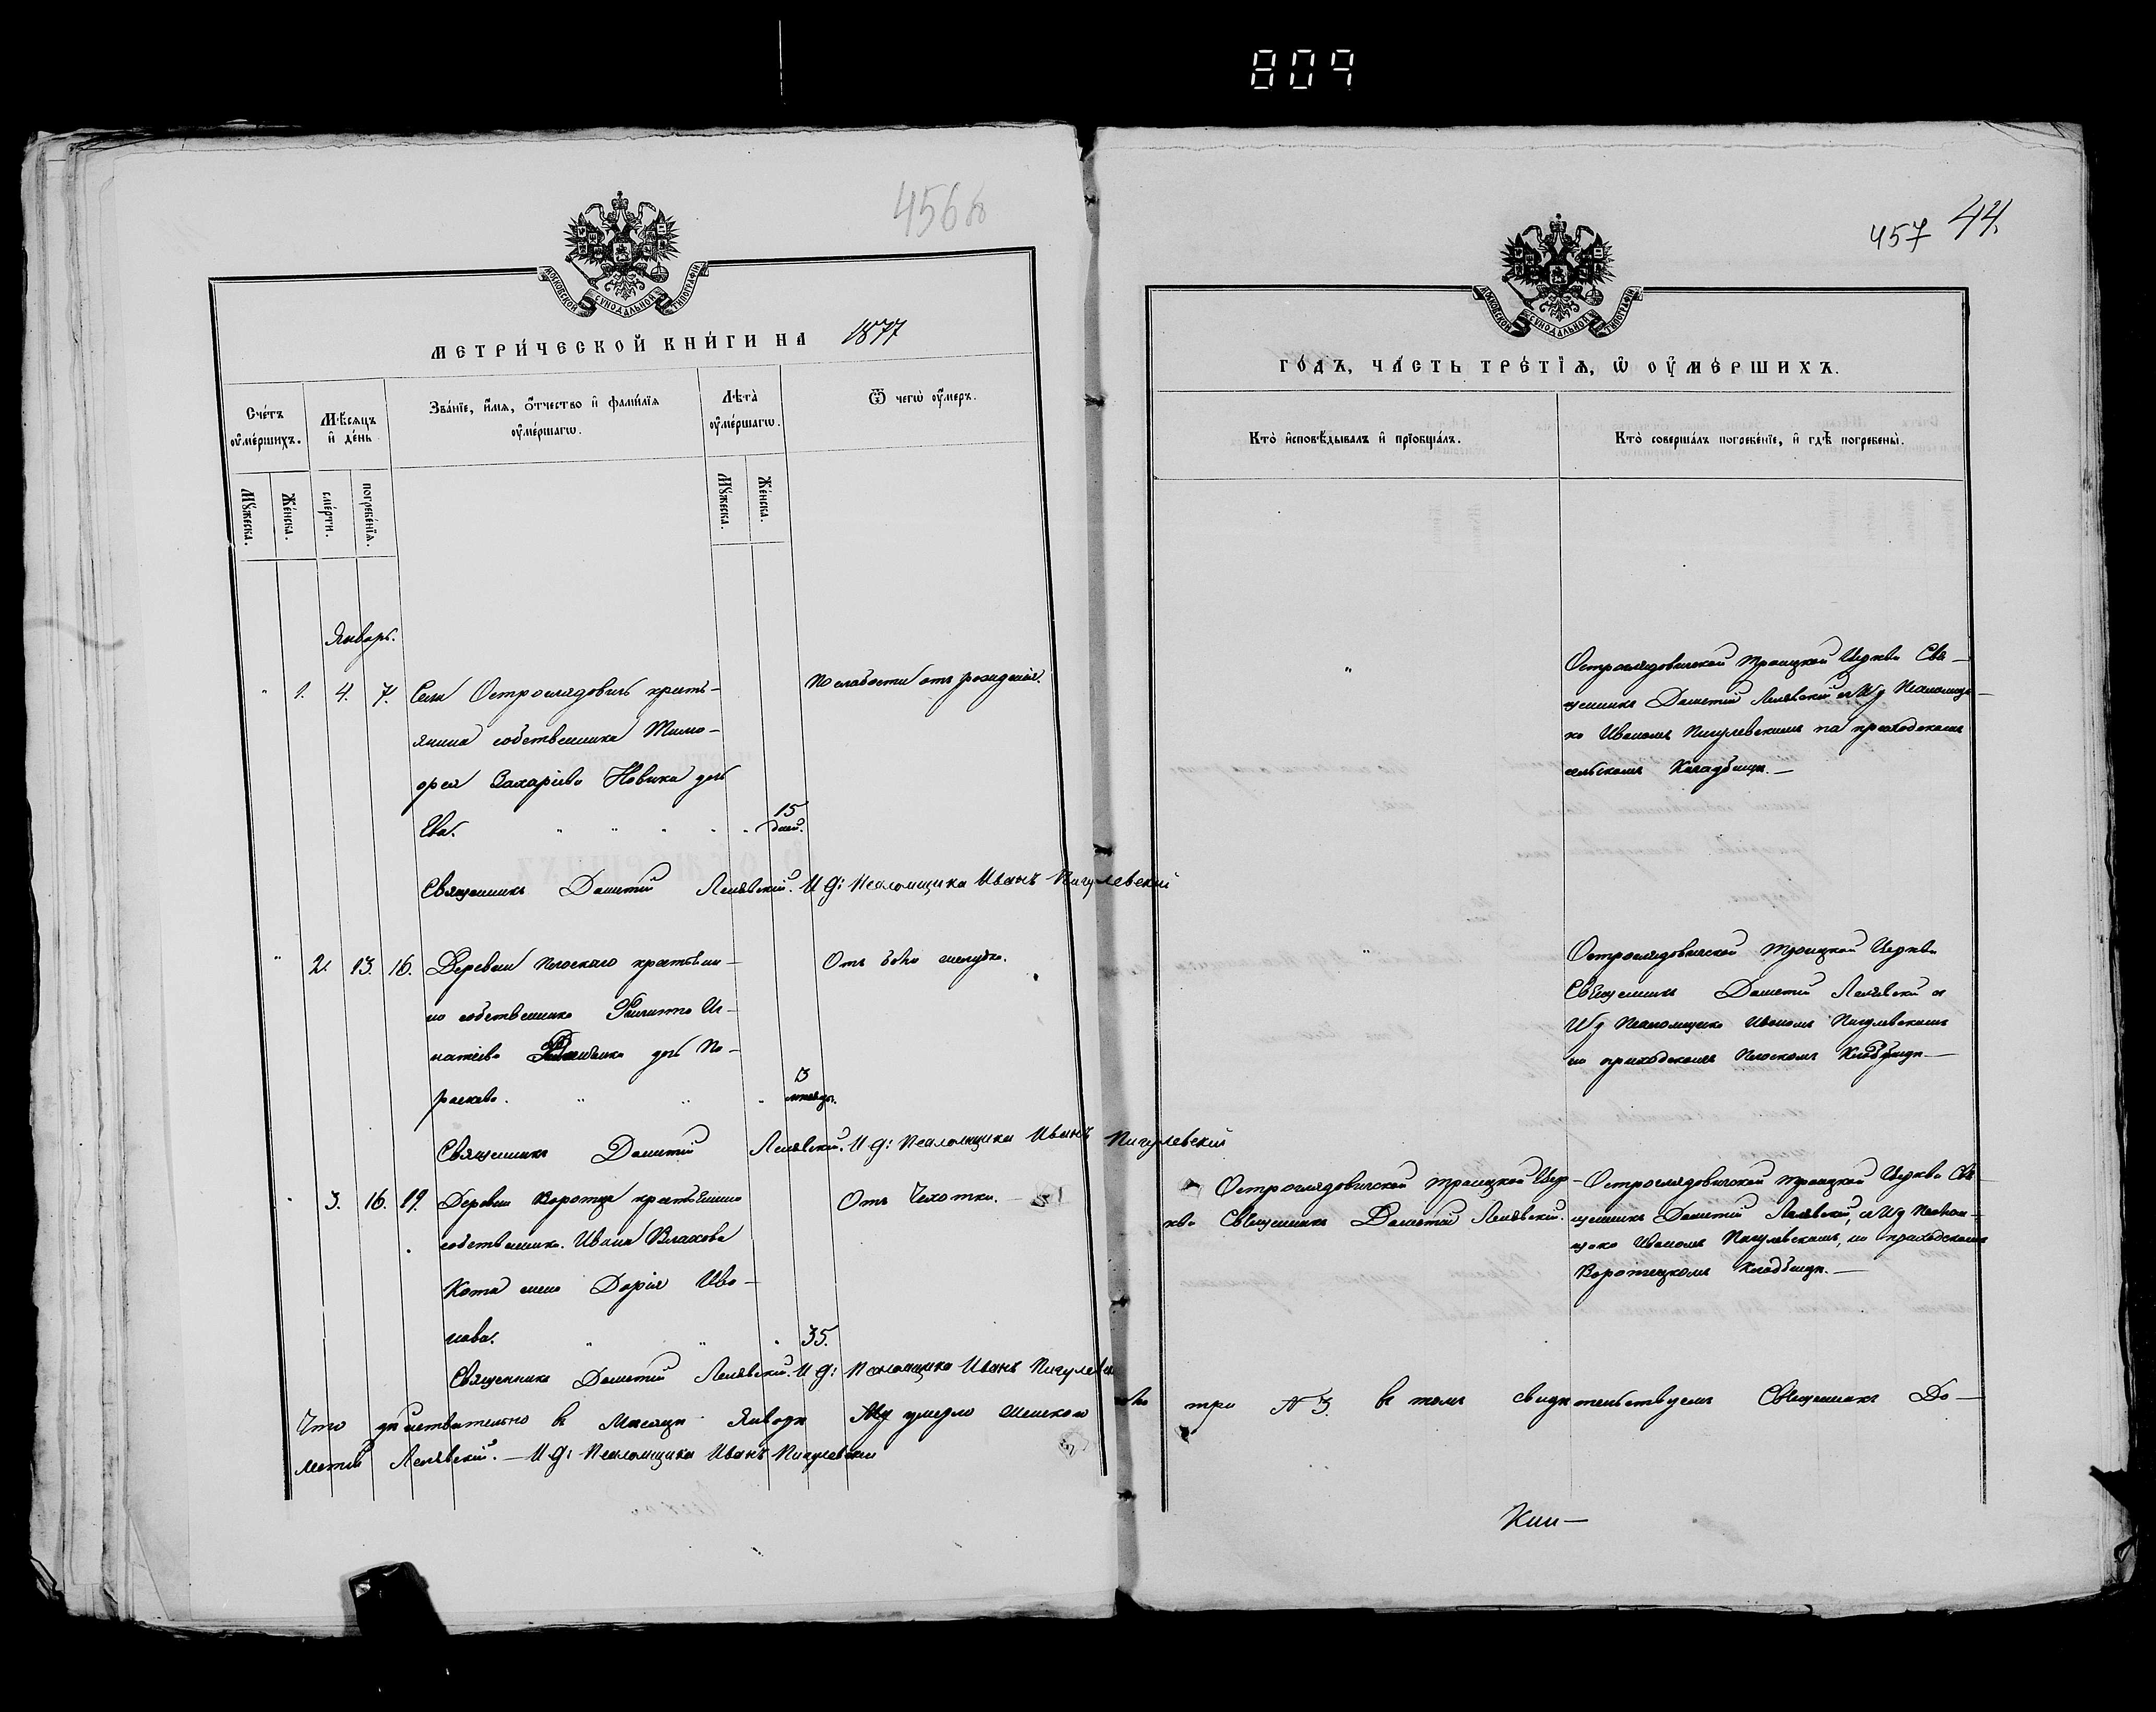 809
456об
МОСКОВСКОЙ СѴНОДАЛЬНОЙ ТИПОГРАФІИ
МЕТРИ́ЧЕСКОЙ КНИ́ГИ НА 1877
Сче́тъ ᲂу҆ме́ршихъ.
Мѣ́сяцъ и҆ де́нь
Зва́нїе, и҆́мѧ, ѻ҆́тчество и҆ фами́лїѧ ᲂу҆ме́ршагѡ.
Лѣ́та ᲂу҆ме́ршагѡ.
Ѿ чегѡ̀ ᲂу҆́меръ.
Мꙋ́жеска.
Же́нска.
сме́рти.
погребе́нїѧ.
Мꙋ́жеска.
Же́нска.
Январь.
" 1. 4. 7. Села Острогля­довичъ кресть-
янина собственника Тимо-
фея Захаріева Новика дочь
Ева. " " " " " 15 дней.
По слабости отъ рожденія.
Священникъ Дометій Лелявскій. И д: Псаломщика Иванъ Пигулевскій
" 2. 13. 16. Деревни Плоскаго крестьяни-
на собственника Филиппа Иг-
натіева дочь Па-
раскева. " " " 3 месяцы.
Отъ боли желудка.
Священникъ Дометій Лелявскій. И д: Псаломщика Иванъ Пигулевскій
" 3. 16. 19. Деревни Воротца крестьянина
собственника Ивана Влахова
Кота жена Дарія Ива-
нова. " " " 35.
Отъ Чахотки.
Священникъ Дометій Лелявскій. И д: Псаломщика Иванъ Пигулевскій
Что действительно въ Месяце Январе умерло Женскаго
метій Лелявскій. — И д: Псаломщика Иванъ Пигулевскій
457 44.
МОСКОВСКОЙ СѴНОДАЛЬНОЙ ТИПОГРАФІИ
ГО́ДЪ, ЧА́СТЬ ТРЕ́ТЇѦ, Ѡ҆ ОУ҆МЕ́РШИХЪ.
Кто̀ и҆сповѣ́дывалъ и҆ прїѡбща́лъ.
Кто̀ соверша́лъ погребе́нїе, и҆ гдѣ̀ погребены̀.
"
Острогля­довичской Троицкой Церкви Свя-
щенникъ Дометій Лелявскій и И д Псаломщи-
ка Иваномъ Пигулевскимъ на приходскомъ
сельскомъ Кладбище. —
"
Острогля­довичской Троицкой Церкви
Священникъ Дометій Лелявскій и
И д Псаломщика Иваномъ Пигулевскимъ
на приходскомъ Плоскомъ Кладбище —
Острогля­довичской Троицкой Цер-
кви Священникъ Дометій Лелявскій.
Острогля­довичской Троицкой Церкви Свя-
щенникъ Дометій Лелявскій, и И д Псалом-
щика Иваномъ Пигулевскимъ, на приходскомъ
Воротецкомъ Кладбище. —
три № 3. въ томъ свидетельствуемъ Священникъ До-
Кни-